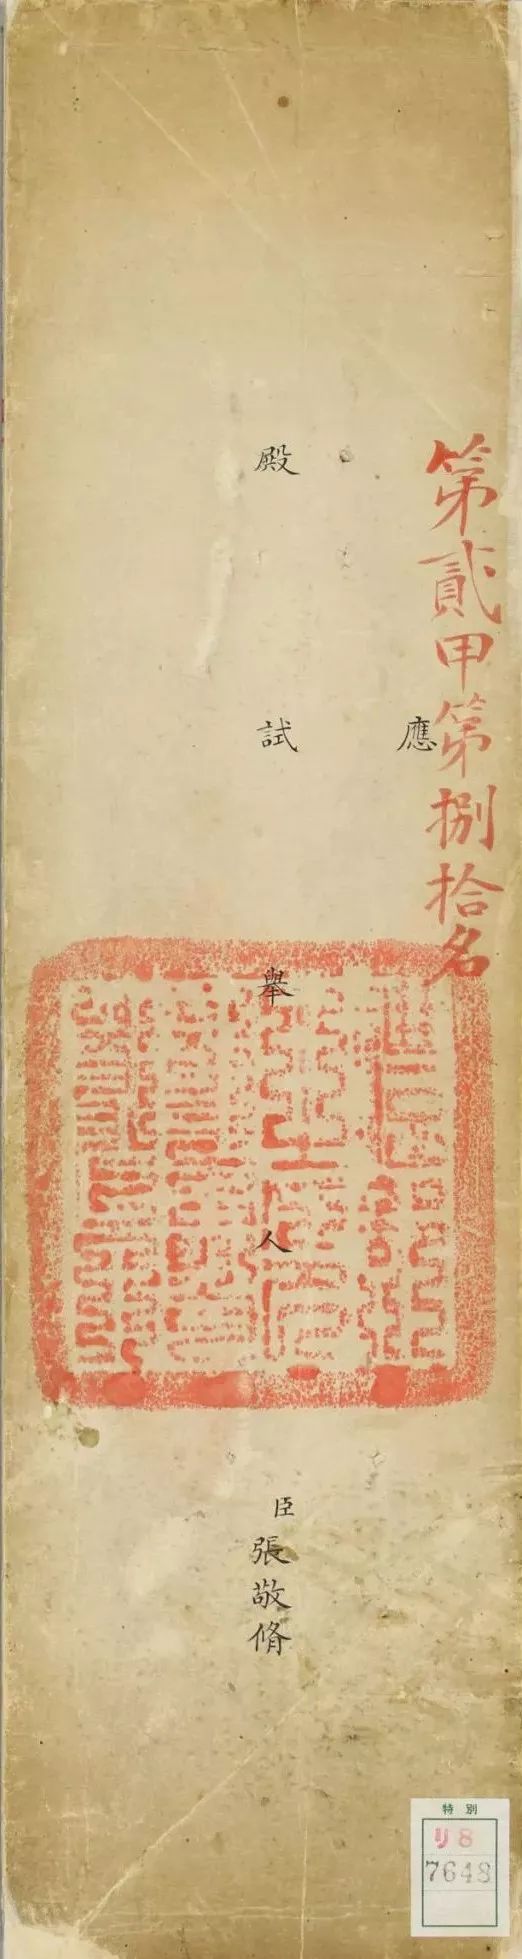 第貳甲第捌拾名
應
殿試舉人
臣張敬脩
特別
リ8
7648